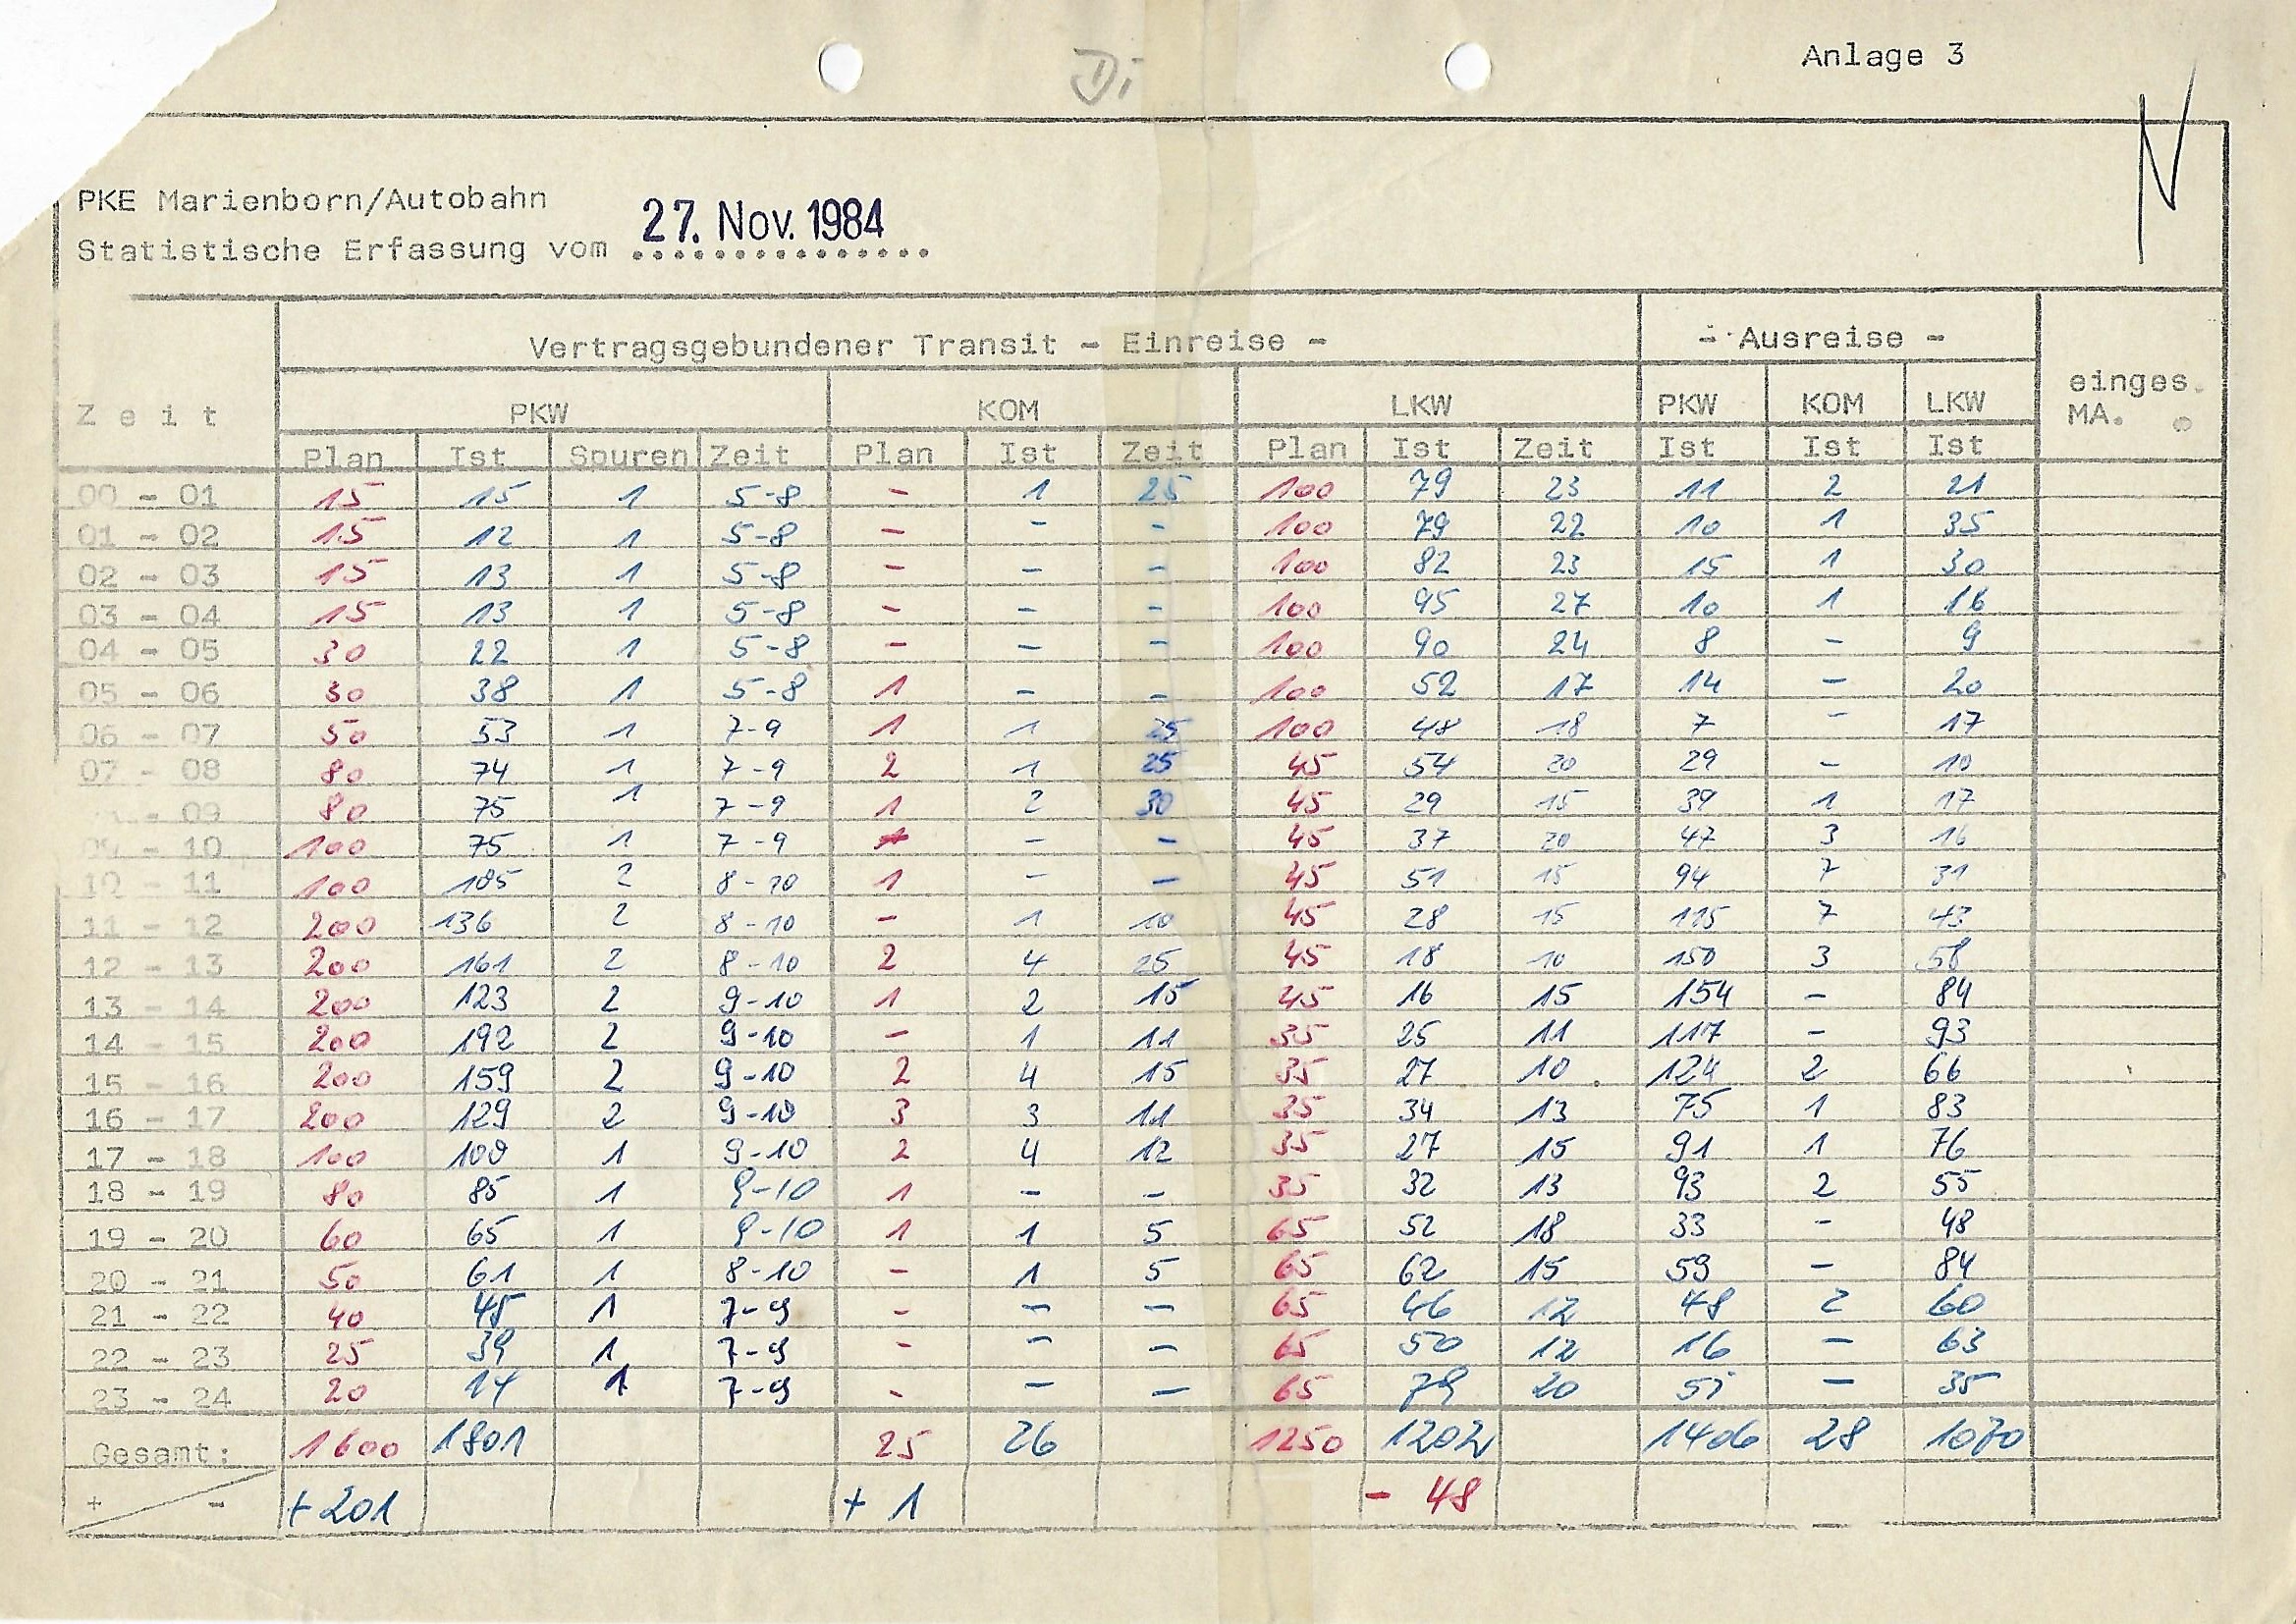 Di
Anlage 3
N
PKE Marienborn/Autobahn
Statistische Erfassung vom 27. Nov. 1984
Vertragsgebundener Transit - Einreise - - Ausreise -
Z e i t PKW KOM LKW PKW KOM LKW einges. MA.
Plan Ist Spuren Zeit Plan Ist Zeit Plan Ist Zeit Ist Ist Ist
00 - 01 15 15 1 5-8 - 1 25 100 79 23 11 2 21
01 - 02 15 12 1 5-8 - - - 100 79 22 10 1 35
02 - 03 15 13 1 5-8 - - - 100 82 23 15 1 30
03 - 04 15 13 1 5-8 - - - 100 95 27 10 1 16
04 - 05 30 22 1 5-8 - - - 100 90 24 8 - 9
05 - 06 30 38 1 5-8 1 - - 100 52 17 14 - 20
06 - 07 50 53 1 7-9 1 1 25 100 48 18 7 - 17
07 - 08 80 74 1 7-9 2 1 25 45 54 20 29 - 10
- 09 80 75 1 7-9 1 2 30 45 29 15 39 1 17
09 - 10 100 75 1 7-9 - - 45 37 20 47 3 16
10 - 11 100 185 2 8-10 1 - - 45 51 15 94 7 31
11 - 12 200 136 2 8-10 - 1 10 45 28 15 115 7 43
12 - 13 200 161 2 8-10 2 4 25 45 18 10 150 3 58
13 - 14 200 123 2 9-10 1 2 15 45 16 15 154 - 84
14 - 15 200 192 2 9-10 - 1 11 35 25 11 117 - 93
15 - 16 200 159 2 9-10 2 4 15 35 27 10 124 2 66
16 - 17 200 129 2 9-10 3 3 11 35 34 13 75 1 83
17 - 18 100 100 1 9-10 2 4 12 35 27 15 91 1 76
18 - 19 80 85 1 9-10 1 - - 35 32 13 93 2 55
19 - 20 60 65 1 9-10 1 1 5 65 52 18 33 - 48
20 - 21 50 61 1 8-10 - 1 5 65 62 15 59 - 84
21 - 22 40 45 1 7-9 - - - 65 46 12 48 2 60
22 - 23 25 39 1 7-9 - - - 65 50 12 16 - 63
23 - 24 20 14 1 7-9 - - - 65 79 20 57 - 35
Gesamt: 1600 1801 25 26 1250 1202 1406 28 1070
+ - +201 + 1 - 48